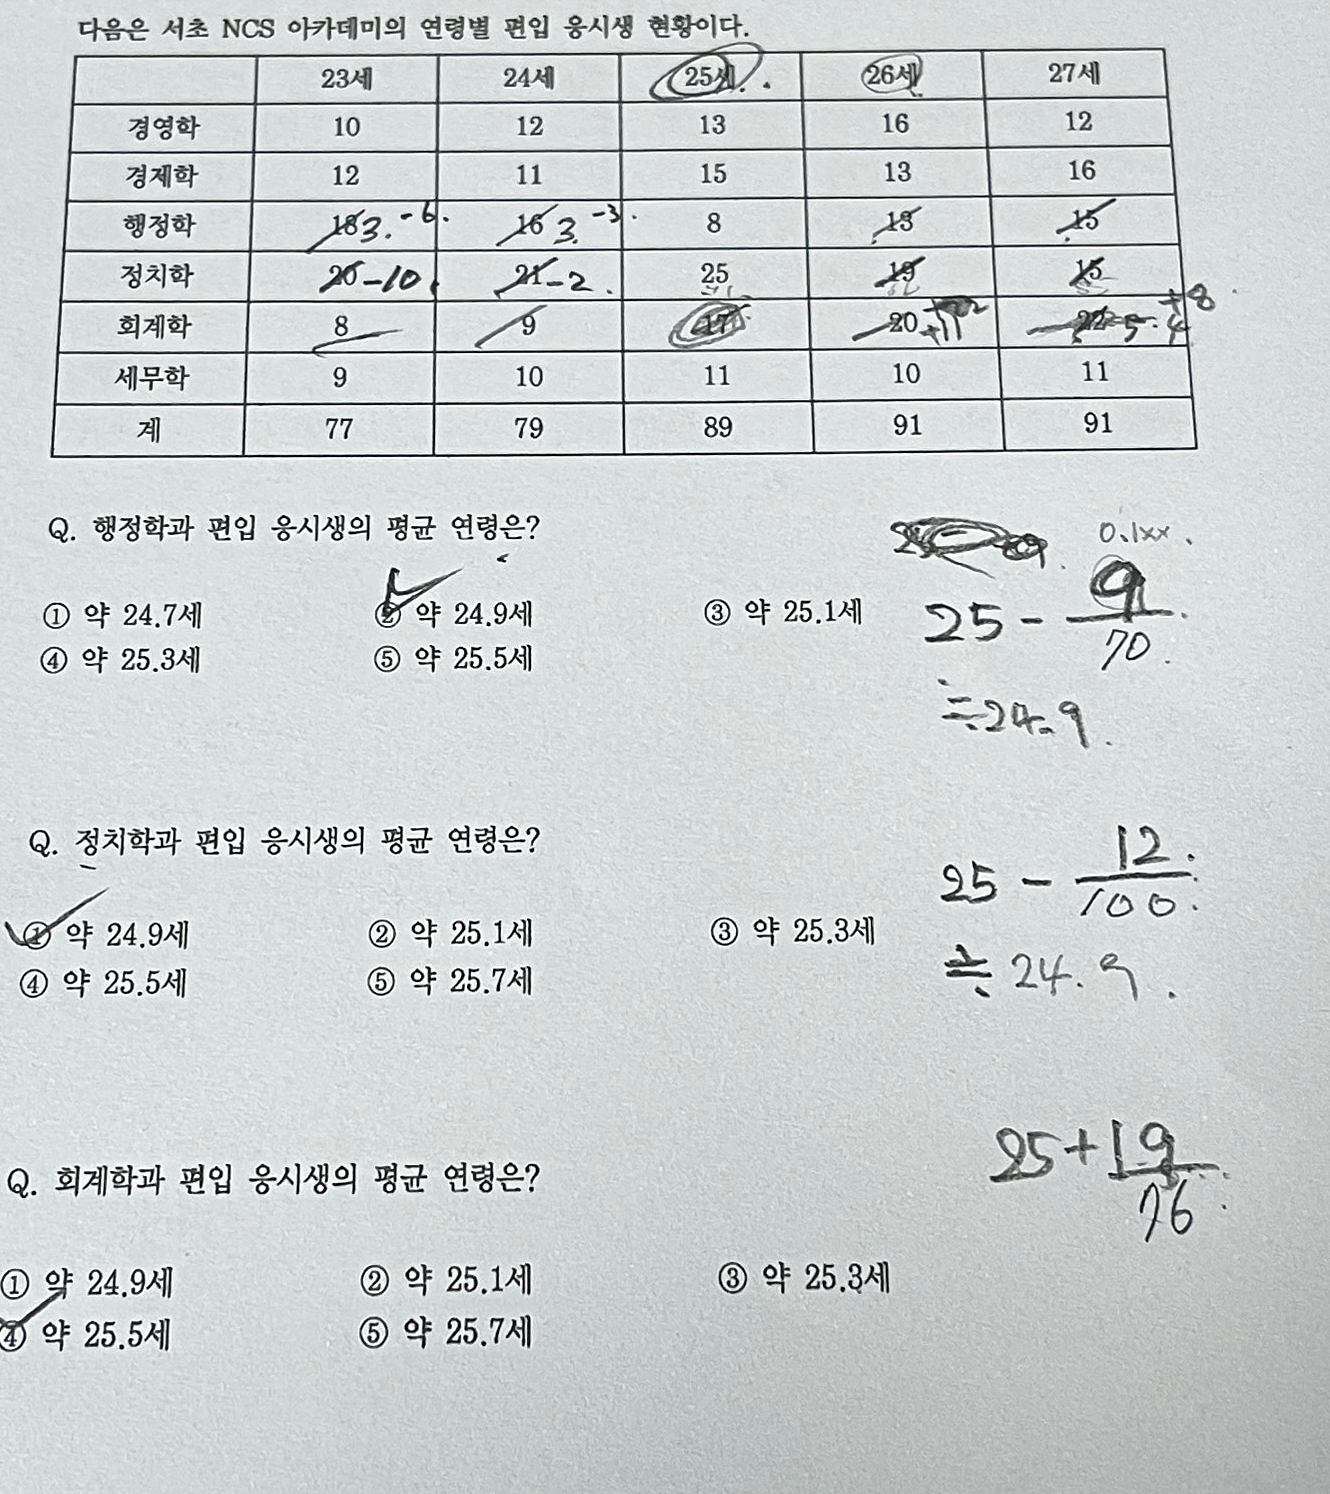 다음은 서초 NCS 아카데미의 연령별 편입 응시생 현황이다.
23세 24세 25세 26세 27세
경영학 10 12 13 16 12
경제학 12 11 15 13 16
행정학 18 3. -6. 16 3. -3. 8 13 15
정치학 20 -10 21 -2. 25 19 15
회계학 8 9 17 20 22 +8
세무학 9 10 11 10 11
계 77 79 89 91 91
Q. 행정학과 편입 응시생의 평균 연령은?
0.1xx.
① 약 24.7세 ② 약 24.9세 ③ 약 25.1세
25 - 9/70.
④ 약 25.3세 ⑤ 약 25.5세
≒24.9.
Q. 정치학과 편입 응시생의 평균 연령은?
25 - 12/100.
① 약 24.9세 ② 약 25.1세 ③ 약 25.3세
④ 약 25.5세 ⑤ 약 25.7세
≒ 24.9.
Q. 회계학과 편입 응시생의 평균 연령은?
25+19/76.
① 약 24.9세 ② 약 25.1세 ③ 약 25.3세
④ 약 25.5세 ⑤ 약 25.7세